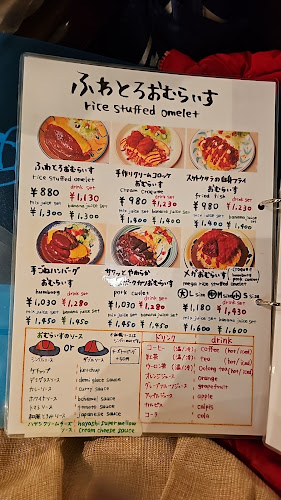 ふわとろおむらいす
rice stuffed omelet
ふわとろおむらいす
rice stuffed omelet
¥880
drink set
¥1,130
mix juice set
¥1,300
banana juice set
¥1,300
手作りクリームコロッケ
おむらいす
cream croquette
¥980
drink set
¥1,230
mix juice set
¥1,400
banana juice set
¥1,400
スケトウダラの白身フライ
おむらいす
fried fish
¥980
drink set
¥1,230
mix juice set
¥1,400
banana juice set
¥1,400
手ごねハンバーグ
おむらいす
hamburg
¥1,030
drink set
¥1,280
mix juice set
¥1,450
banana juice set
¥1,450
サクッとやわらか
おむらいす
pork cutlet
¥1,030
drink set
¥1,280
mix juice set
¥1,450
banana juice set
¥1,450
メガおむらいす
mega rice stuffed omelet
L size
S size
¥1,180
mix juice set
¥1,600
banana juice set
¥1,600
おむらいすのソース
or
ケチャップ : ketchup
デミグラスソース : demi glace sauce
カレーソース : curry sauce
ホワイトソース : bechamel sauce
トマトソース : tomato sauce
和風きのこソース : japanese sauce
ハヤシクリームチーズ hayashi super mellow
ソース : cream cheese sauce
ドリンク drink
コーヒー (温/冷) : coffee (hot/iced)
紅茶 (温/冷) : tea (hot/iced)
ウーロン茶 (温/冷) : Oolong tea (hot/iced)
オレンジジュース : orange
グレープフルーツジュース : grapefruit
アップルジュース : apple
カルピス : calpis
コーラ : cola